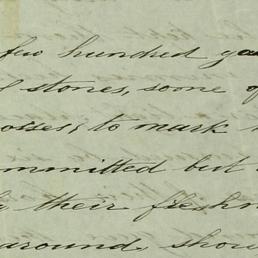 few hundred ya
stones, some o
osses, to mark
ommitted but
their freshn
around, shou